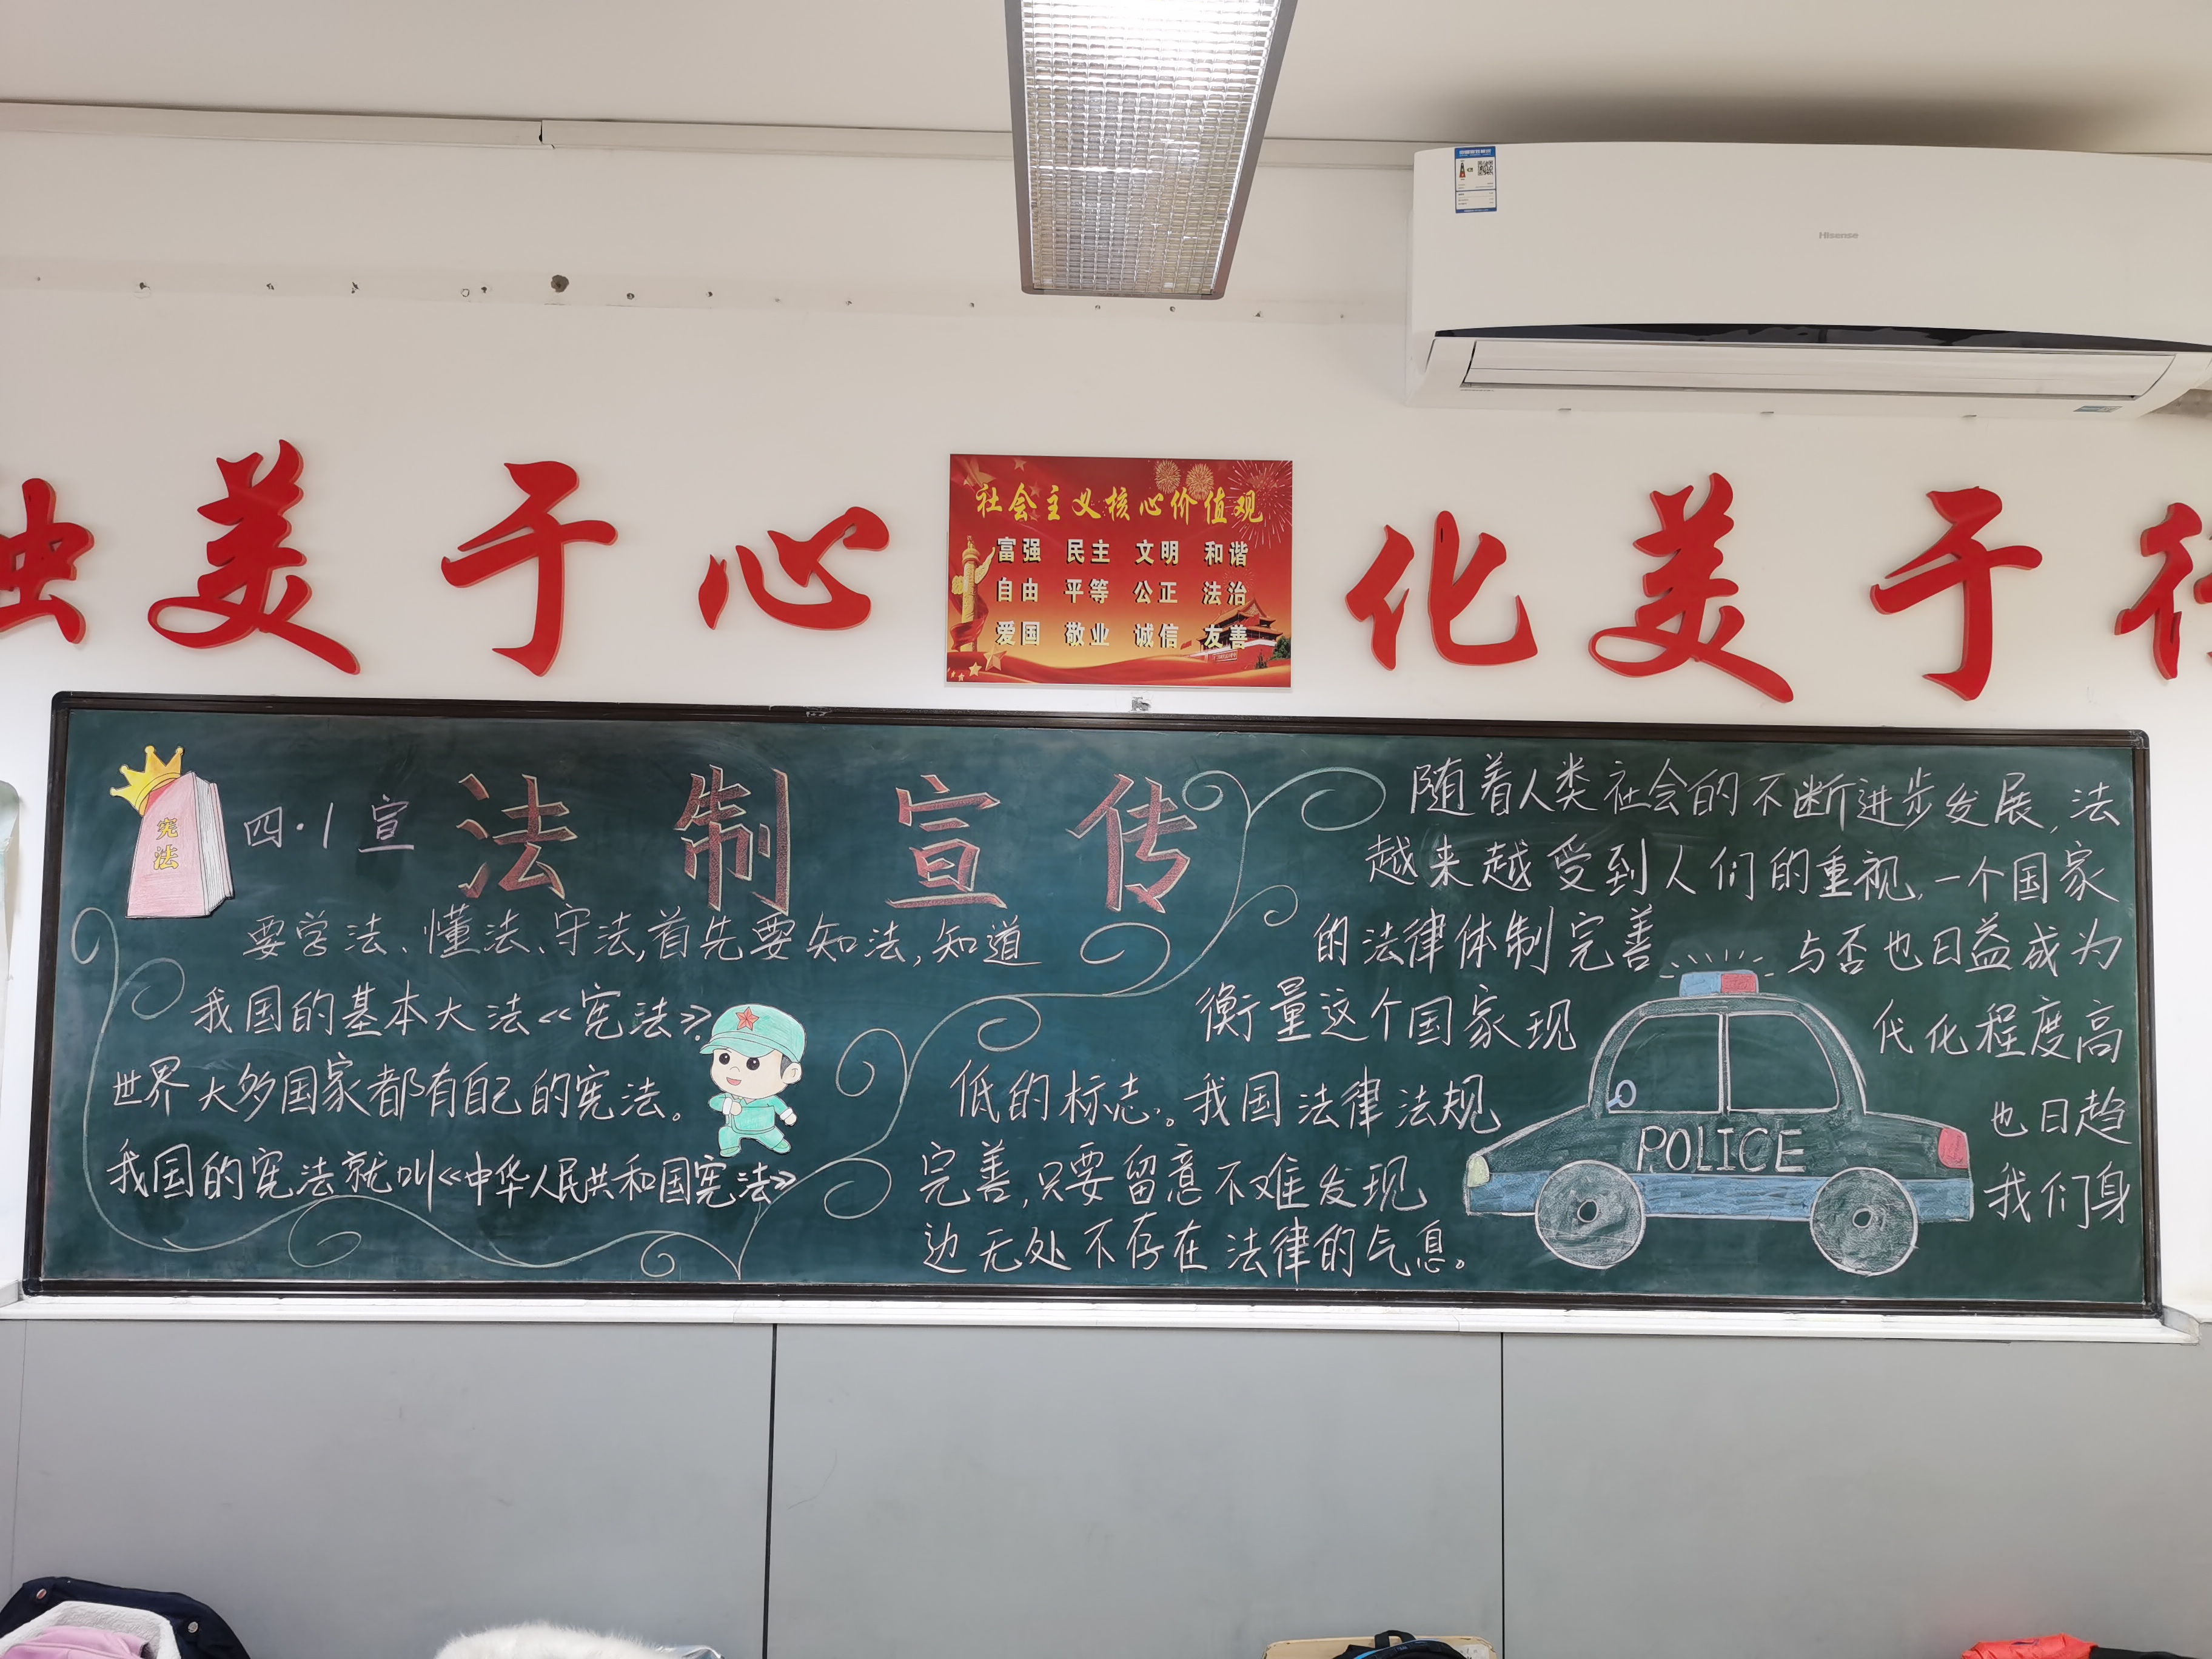 Hisense
美于心
社会主义核心价值观
富强 民主 文明 和谐
自由 平等 公正 法治
爱国 敬业 诚信 友善
化美于行
宪法
四·1宣
法制宣传
要学法、懂法、守法,首先要知法,知道
我国的基本大法《宪法》?
世界大多国家都有自己的宪法。
我国的宪法就叫《中华人民共和国宪法》
随着人类社会的不断进步发展,法
越来越受到人们的重视,一个国家
的法律体制完善与否也日益成为
衡量这个国家现代化程度高
低的标志。我国法律法规也日趋
完善,只要留意不难发现我们身
边无处不存在法律的气息。
POLICE